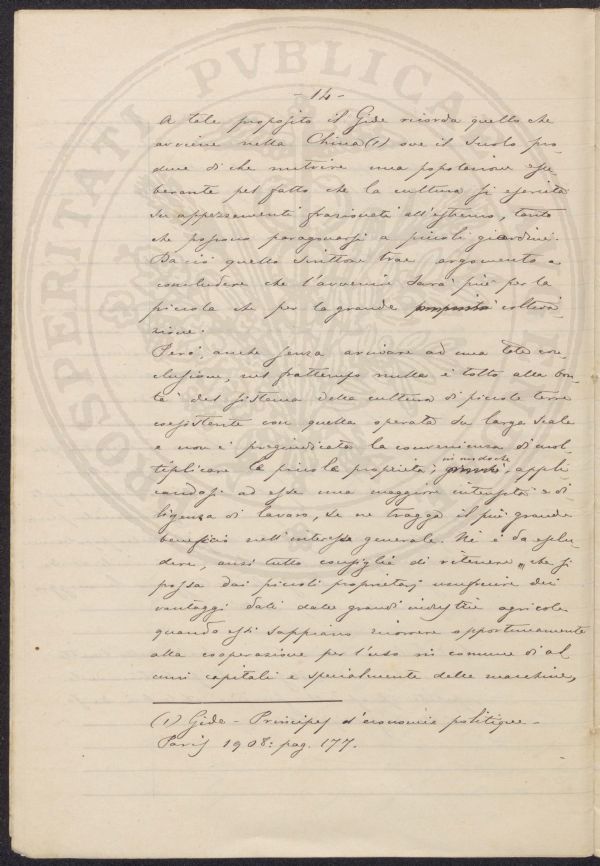 PROSPERITATI PVBLICAE
- 14 -
A tale proposito il Gide ricorda quello che
avviene nella China (1) ove il suolo pro-
duce di che nutrire una popolazione esu-
berante pel fatto che la cultura si esercita
su appezzamenti frazionati all'estremo, tanto
che possono paragonarsi a piccoli giardini.
Da ciò quello scrittore trae argomento a
concludere che l'avvenire sarà più per la
piccola che per la grande coltiva-
zione.
Però, anche senza arrivare ad una tale con-
clusione, nel frattempo nulla è tolto alla bon-
tà del sistema della cultura di piccole terre
coesistente con quella operata su larga scala
e non è pregiudicata la convenienza di mol-
tiplicare la piccola proprietà, in modo che, appli-
candosi ad esse una maggiore intensità e di-
ligenza di lavoro, se ne tragga il più grande
beneficio nell'interesse generale. Nè è da esclu-
dere, anzi tutto consiglia di ritenere, che si
possa dai piccoli proprietarj usufruire dei
vantaggi dati dalle grandi industrie agricole
quando essi sappiano ricorrere opportunamente
alla cooperazione per l'uso in comune di al-
cuni capitali e specialmente delle macchine,
(1) Gide - Principes d'économie politique -
Paris 1908: pag. 177.